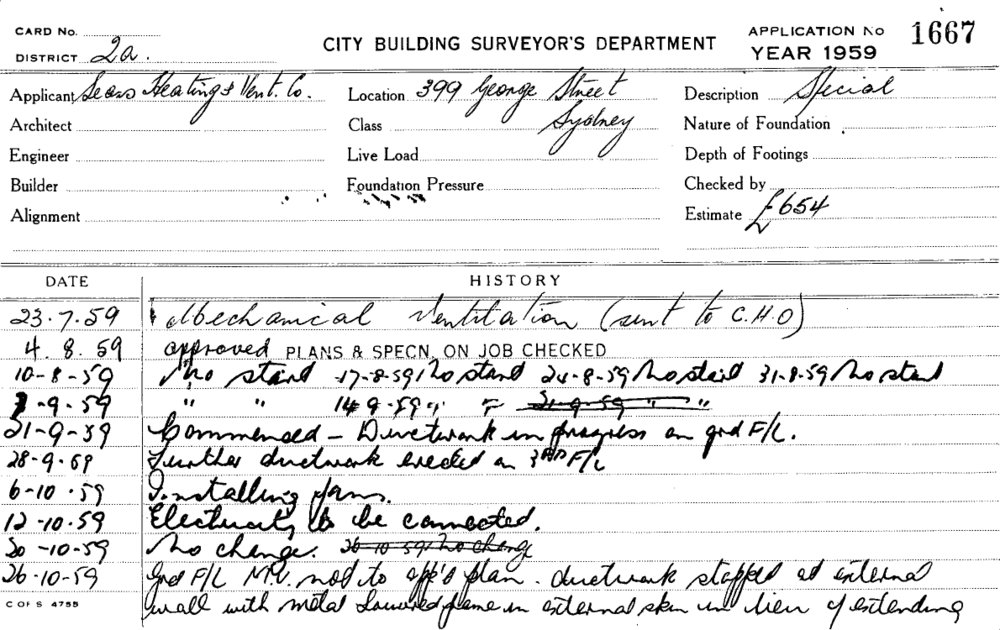 CARD No.
DISTRICT 2a.
CITY BUILDING SURVEYOR'S DEPARTMENT
APPLICATION No 1667
YEAR 1959
Applicant Sears Heating & Vent. Co.
Location 399 George Street
Description Special
Architect
Class Sydney
Nature of Foundation
Engineer
Live Load
Depth of Footings
Builder
Foundation Pressure
Checked by
Alignment
Estimate £654
DATE HISTORY
23.7.59 Mechanical Ventilation (sent to C.H.O)
4.8.59 approved PLANS & SPECN. ON JOB CHECKED
10-8-59 No start 17-8-59 No start 24-8-59 No start 31-8-59 No start
-9-59 " " 14 9-59 " " 21-9-59 " "
21-9-59 Commenced - Ductwork in progress on grd F/L.
28-9-59 Further ductwork erected on 3RD F/L
6-10-59 Installing fans.
12-10-59 Electricity to be connected.
20-10-59 No change. 26-10-59 No change
26-10-59 Grd F/L M.V. not to app'd plan. ductwork stopped at external
wall with metal louvred frame in external skin in lieu of extending
C OF S 4755